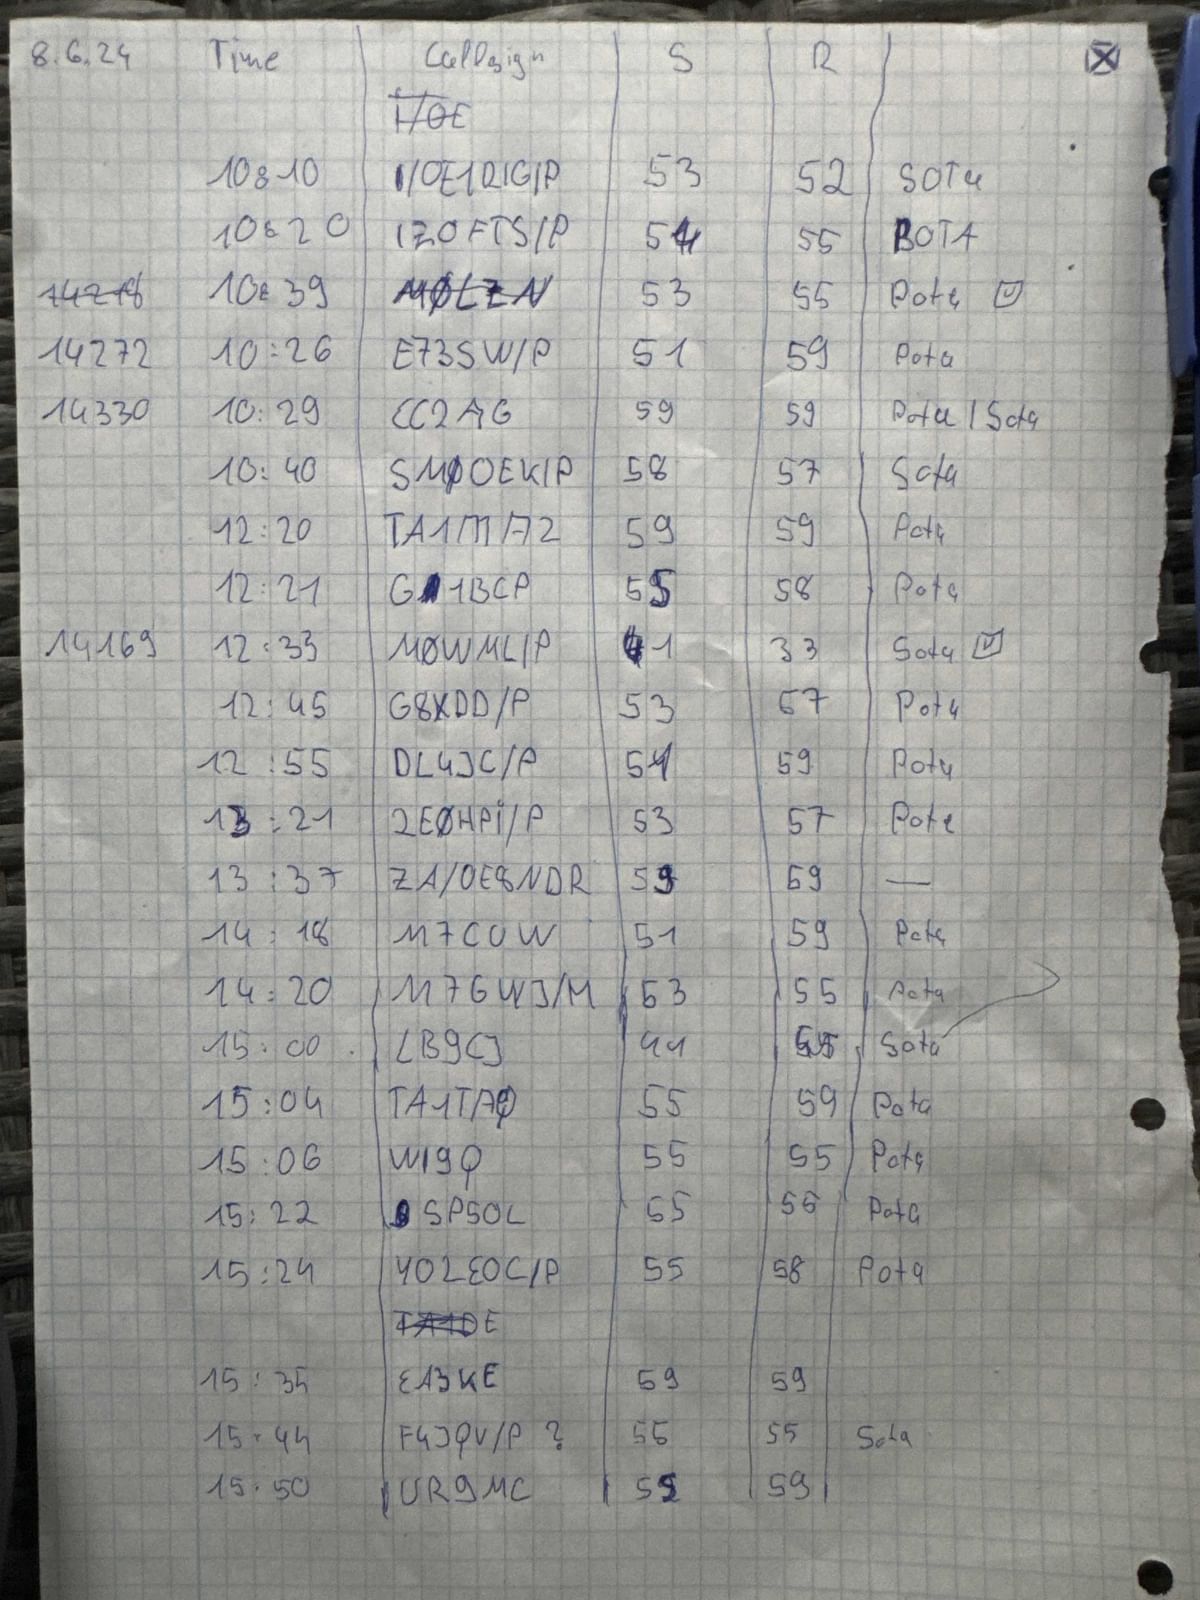 8.6.24 Time Callsign S R
I/OE
10:10 I/OE1RIG/P 53 52 SOTa
10:20 IZ0FTS/P 54 55 BOTA
14278 10:39 MØLZN 53 55 Pota
14272 10:26 E73SW/P 51 59 Pota
14330 10:29 CC2AG 59 59 Pota / Sota
10:40 SMØOEK/P 58 57 Sota
12:20 59 59 Pota
12:21 G1BCP 55 58 Pota
14169 12:33 MØWML/P 41 33 Sota
12:45 G8XDD/P 53 57 Pota
12:55 DL4JC/P 54 59 Pota
13:21 2EØHPi/P 53 57 Pota
13:37 ZA/OE8NDR 59 59 —
14:18 M7COW 51 59 Pota
14:20 M7GWJ/M 53 55 Pota
15:00 LB9CJ 44 Sota
15:04 TA1TAQ 55 59 Pota
15:06 WI9Q 55 55 Pota
15:22 SP5OL 55 56 Pota
15:24 YO2EOC/P 55 58 Pota
TA1DE
15:35 EA3KE 59 59
15:44 F4JQV/P ? 55 55 Sota
15:50 UR9MC 55 59